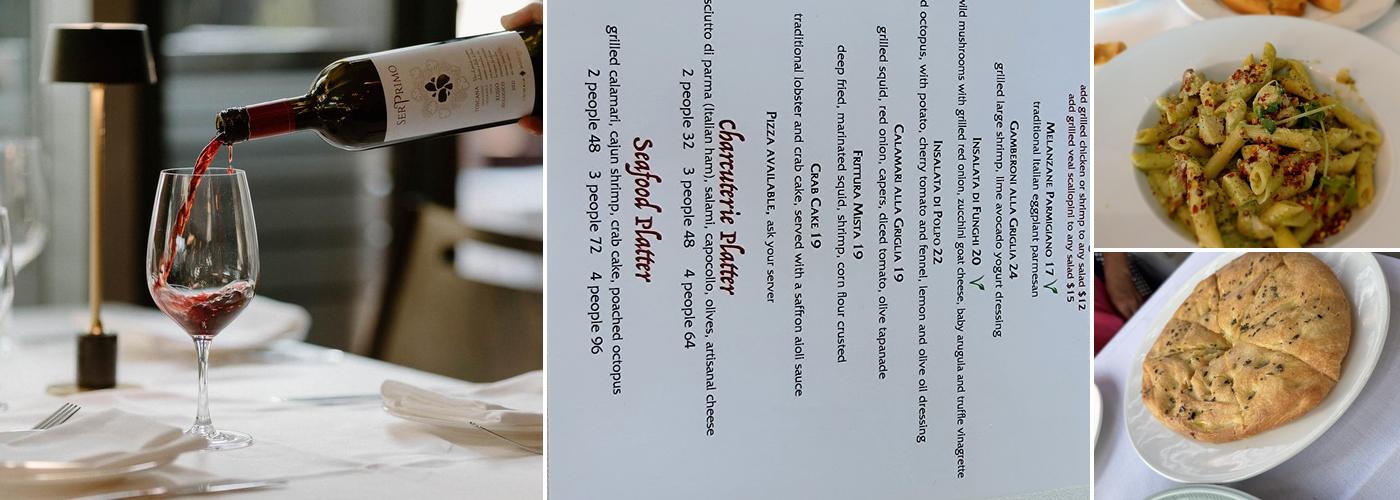 SERPRIMO
add grilled chicken or shrimp to any salad $12
add grilled veal scallopini to any salad $15
MELANZANE PARMIGIANO 17
traditional Italian eggplant parmesan
GAMBERONI ALLA GRIGLIA 24
grilled large shrimp, lime avocado yogurt dressing
INSALATA DI FUNGHI 20
wild mushrooms with grilled red onion, zucchini goat cheese, baby arugula and truffle vinagrette
INSALATA DI POLPO 22
octopus, with potato, cherry tomato and fennel, lemon and olive oil dressing
CALAMARI ALLA GRIGLIA 19
grilled squid, red onion, capers, diced tomato, olive tapanade
FRITTURA MISTA 19
deep fried, marinated squid, shrimp, corn flour crusted
CRAB CAKE 19
traditional lobster and crab cake, served with a saffron aioli sauce
PIZZA AVAILABLE, ask your server
Charcuterie Platter
sciutto di parma (Italian ham), salami, capocollo, olives, artisanal cheese
2 people 32 3 people 48 4 people 64
Seafood Platter
grilled calamari, cajun shrimp, crab cake, poached octopus
2 people 48 3 people 72 4 people 96